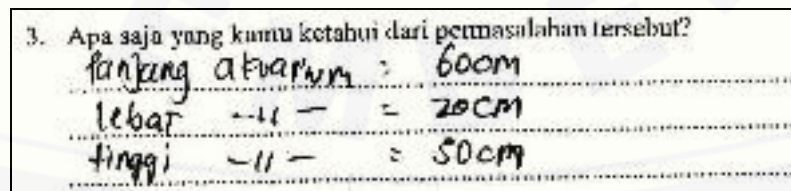 3. Apa saja yang kamu ketahui dari permasalahan tersebut?
Panjang akuarium = 60cm
lebar -11- = 20cm
tinggi -11- = 50cm